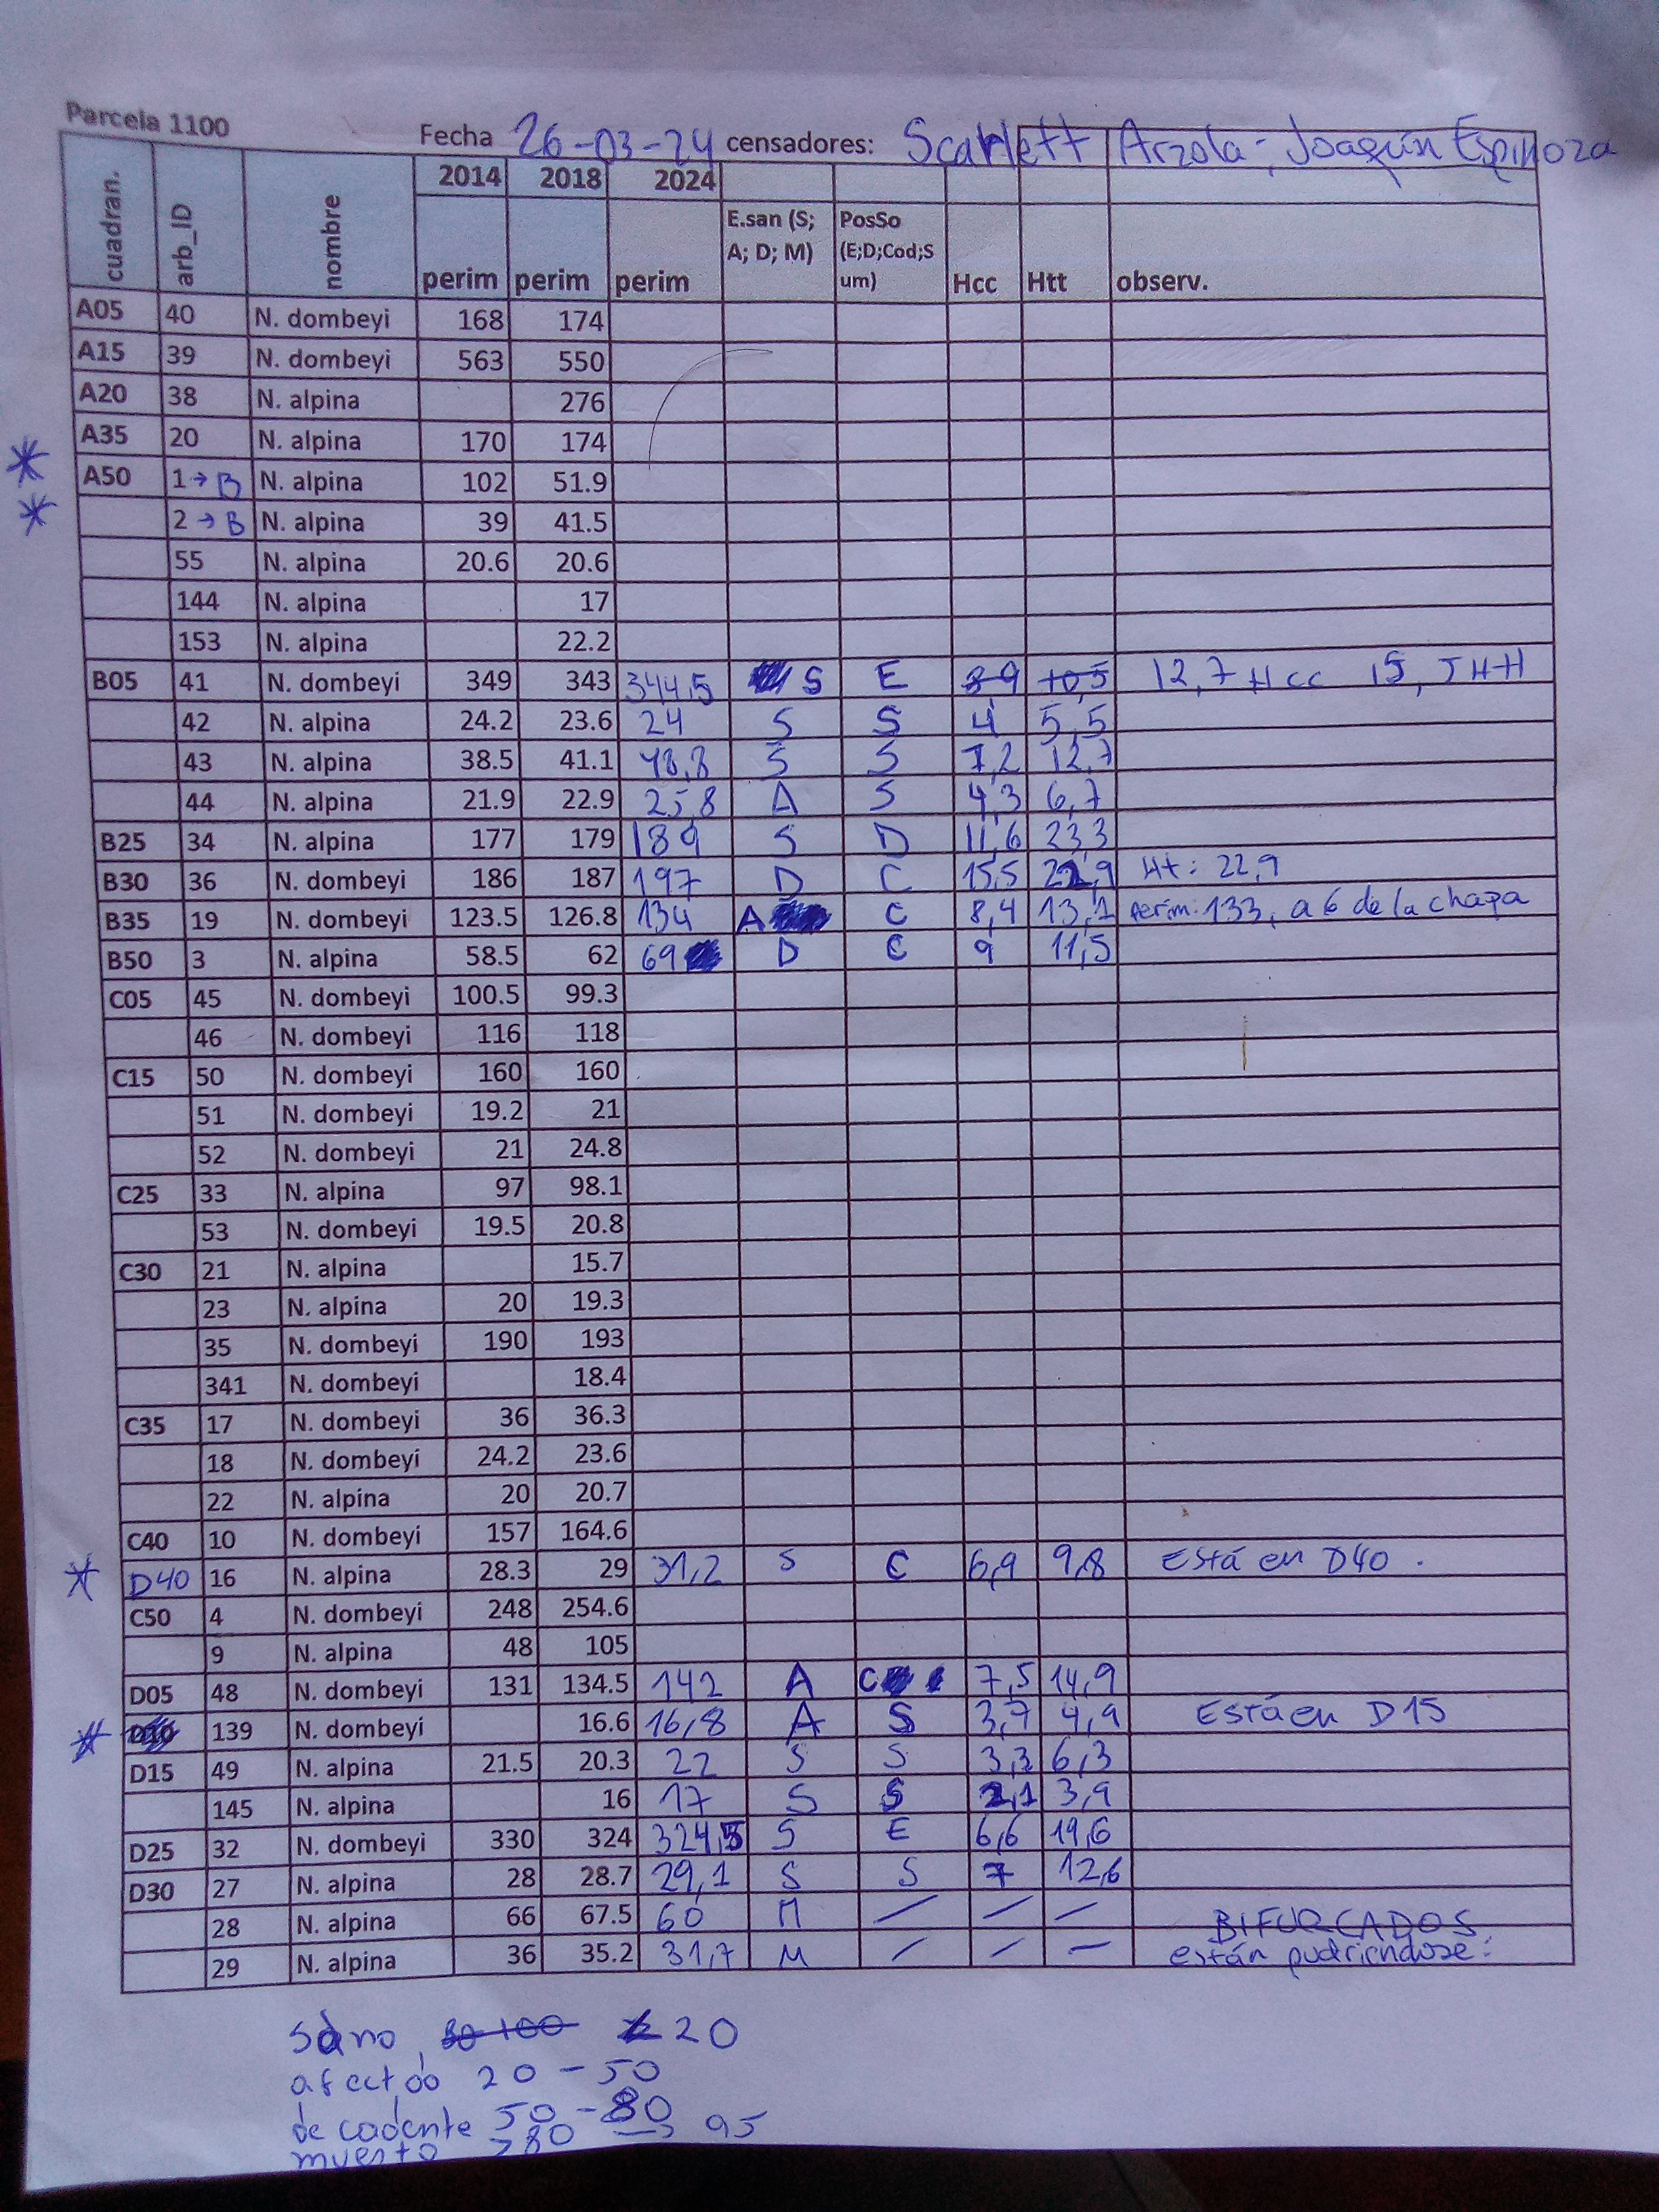 Parcela 1100
Fecha 26-03-24 censadores: Scarlett Arzola; Joaquín Espinoza
2014 2018 2024
cuadran. arb_ID nombre perim perim perim E.san (S; A; D; M) PosSo (E;D;Cod;Sum) Hcc Htt observ.
A05 40 N. dombeyi 168 174
A15 39 N. dombeyi 563 550
A20 38 N. alpina 276
A35 20 N. alpina 170 174
* A50 1→B N. alpina 102 51.9
* 2→B N. alpina 39 41.5
55 N. alpina 20.6 20.6
144 N. alpina 17
153 N. alpina 22.2
B05 41 N. dombeyi 349 343 344,5 S E 8 9 10,5 12,7 Hcc 15,5 Htt
42 N. alpina 24.2 23.6 24 S S 4 5,5
43 N. alpina 38.5 41.1 48,8 S S 7,2 12,7
44 N. alpina 21.9 22.9 25,8 A S 4,3 6,7
B25 34 N. alpina 177 179 189 S D 11,6 23,3
B30 36 N. dombeyi 186 187 197 D C 15,5 22,9 Ht: 22,9
B35 19 N. dombeyi 123.5 126.8 134 A C 8,4 13,1 perim: 133, a 6 de la chapa
B50 3 N. alpina 58.5 62 69 D C 9 11,5
C05 45 N. dombeyi 100.5 99.3
46 N. dombeyi 116 118
C15 50 N. dombeyi 160 160
51 N. dombeyi 19.2 21
52 N. dombeyi 21 24.8
C25 33 N. alpina 97 98.1
53 N. dombeyi 19.5 20.8
C30 21 N. alpina 15.7
23 N. alpina 20 19.3
35 N. dombeyi 190 193
341 N. dombeyi 18.4
C35 17 N. dombeyi 36 36.3
18 N. dombeyi 24.2 23.6
22 N. alpina 20 20.7
C40 10 N. dombeyi 157 164.6
* D40 16 N. alpina 28.3 29 31,2 S C 6,9 9,8 Está en D40.
C50 4 N. dombeyi 248 254.6
9 N. alpina 48 105
D05 48 N. dombeyi 131 134.5 142 A C 7,5 14,9
* D10 139 N. dombeyi 16.6 16,8 A S 3,7 4,9 Está en D15
D15 49 N. alpina 21.5 20.3 22 S S 3,3 6,3
145 N. alpina 16 17 S S 2,1 3,9
D25 32 N. dombeyi 330 324 324,5 S E 6,6 19,6
D30 27 N. alpina 28 28.7 29,1 S S 7 12,6
28 N. alpina 66 67.5 60 M — — — BIFURCADOS
29 N. alpina 36 35.2 31,7 M — — — están pudriendose:
Sano 80-100 20
afectado 20-50
decadente 50-80
muerto >80 → 95